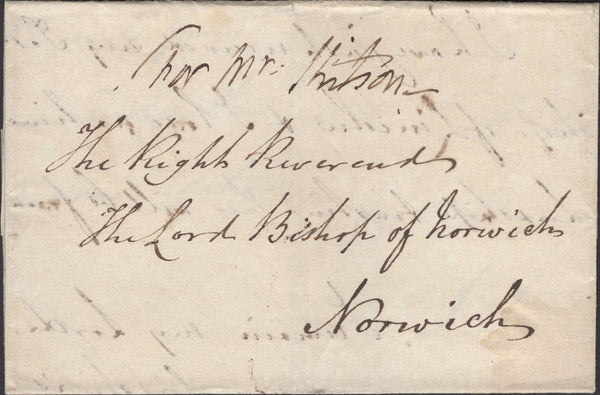 For Mr. Kitson
The Right Reverend
The Lord Bishop of Norwich
Norwich